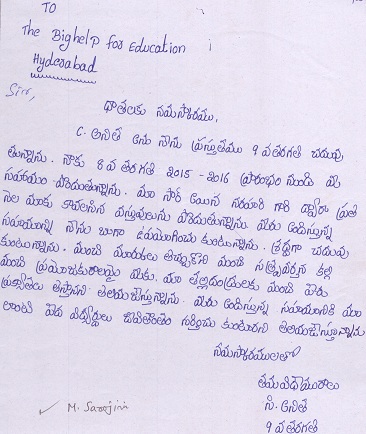 TO
The Bighelp for Education
Hyderabad
Sir,
దాతలకు నమస్కారము,
C. అనిత అను నేను ప్రస్తుతము 9 వ తరగతి చదువు
తున్నాను. నాకు 8 వ తరగతి 2015 - 2016 ప్రారంభం నుండి మీ
సహాయం పొందుతున్నాను. మా సార్ అయిన గారి ద్వారా ప్రతి
నెల మాకు కావలసిన వస్తువులను పొందుతున్నాను. మీరు అందిస్తున్న
సహాయాన్ని నేను బాగా ఉపయోగించు కుంటున్నాను. శ్రద్ధగా చదువు
కుంటున్నాను. మంచి మార్కులు తెచ్చుకొని మంచి సత్ప్రవర్తన కల్గి
మంచి ప్రయోజకురాలినై మీకు, మా తల్లిదండ్రులకు మంచి పేరు
ప్రఖ్యాతలు తెస్తానని తెలియచేస్తున్నాను. మీరు అందిస్తున్న సహాయానికి మా
లాంటి పేద విద్యార్థులు జీవితాంతం గుర్తించు కుంటారని తెలియచేస్తున్నాను
నమస్కారములతో
తమ విధేయురాలు
సి. అనిత
9 వ తరగతి
M. Sarojini